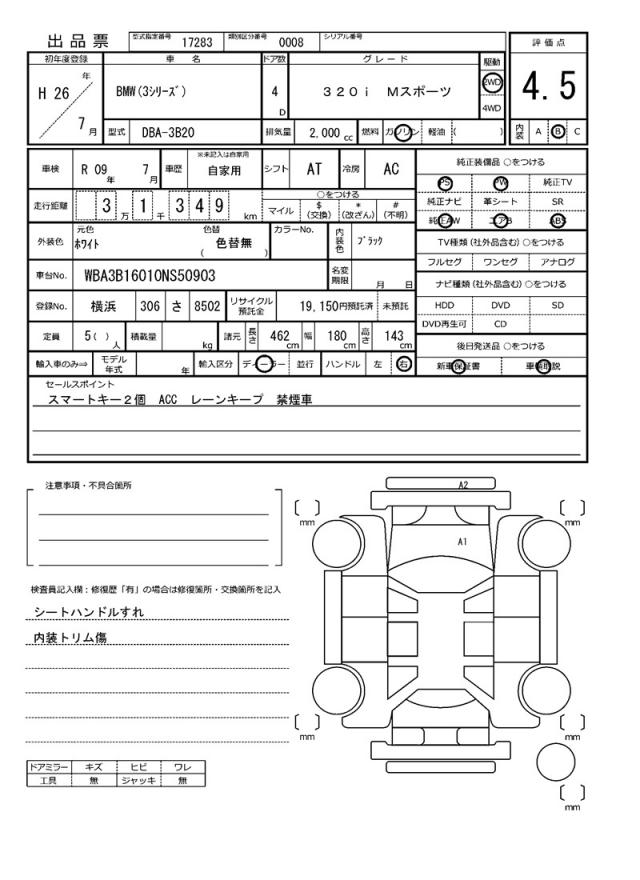 出品票 型式指定番号 17283 類別区分番号 0008 シリアル番号
初年度登録 車名 ドア数 グレード 駆動 評価点
H 26 年 7 月 BMW(3シリーズ) 4 D 320i Mスポーツ 2WD 4WD 4.5
型式 DBA-3B20 排気量 2,000 cc 燃料 ガソリン 軽油 ( ) 内装 A B C
車検 R 09 年 7 月 車歴 ※未記入は自家用 自家用 シフト AT 冷房 AC 純正装備品 ○をつける
PS PW 純正TV
走行距離 3 万 1 千 3 4 9 km ○をつける マイル $ (交換) * (改ざん) # (不明) 純正ナビ 革シート SR
純正AW エアB ABS
外装色 元色 ホワイト 色替 ( 色替無 ) カラーNo. 内装色 ブラック TV種類(社外品含む)○をつける
フルセグ ワンセグ アナログ
車台No. WBA3B16010NS50903 名変期限 月 日 ナビ種類(社外品含む)○をつける
登録No. 横浜 306 さ 8502 リサイクル預託金 19,150円預託済 未預託 HDD DVD SD
DVD再生可 CD
定員 5( ) 人 積載量 kg 諸元 長さ 462 cm 幅 180 cm 高さ 143 cm 後日発送品 ○をつける
輸入車のみ⇒ モデル年式 年 輸入区分 ディーラー 並行 ハンドル 左 右 新車保証書 車輌取説
セールスポイント
スマートキー2個 ACC レーンキープ 禁煙車
注意事項・不具合箇所
A2
mm mm
A1
検査員記入欄:修復歴「有」の場合は修復箇所・交換箇所を記入
シートハンドルすれ
内装トリム傷
mm mm
ドアミラー キズ ヒビ ワレ
工具 無 ジャッキ 無
mm